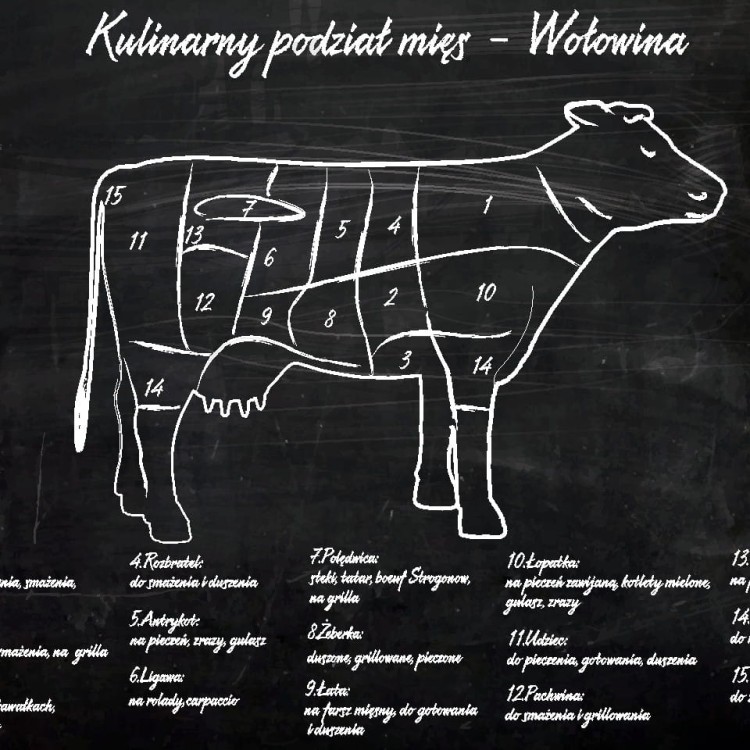 Kulinarny podział mięs - Wołowina
15
7
1
11
13
5
4
6
12
9
8
2
10
3
14
14
smażenia,
smażenia, na grilla
kawałkach,
4.Rozbratel:
do smażenia i duszenia
5.Antrykot:
na pieczeń, zrazy, gulasz
6.Ligawa:
na rolady, carpaccio
7.Polędwica:
steki, tatar, boeuf Strogonow,
na grilla
8.Żeberka:
duszone, grillowane, pieczone
9.Łata:
na farsz mięsny, do gotowania
i duszenia
10.Łopatka:
na pieczeń zawijaną, kotlety mielone,
gulasz, zrazy
11.Udziec:
do pieczenia, gotowania, duszenia
12.Pachwina:
do smażenia i grillowania
13.
na
14.
do
15.
do